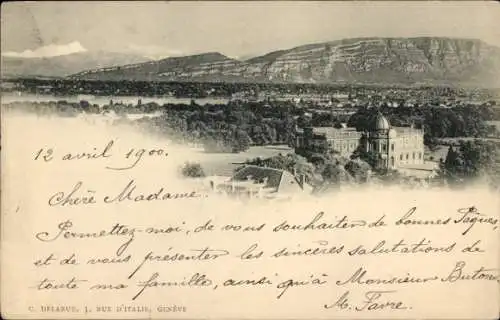 12 avril 1900.
Chère Madame,
Permettez-moi, de vous souhaiter de bonnes Pâques,
et de vous présenter les sincères salutations de
toute ma famille, ainsi qu'à Monsieur
M. Favre.
C. DELARUE, 1, RUE D'ITALIE, GENÈVE